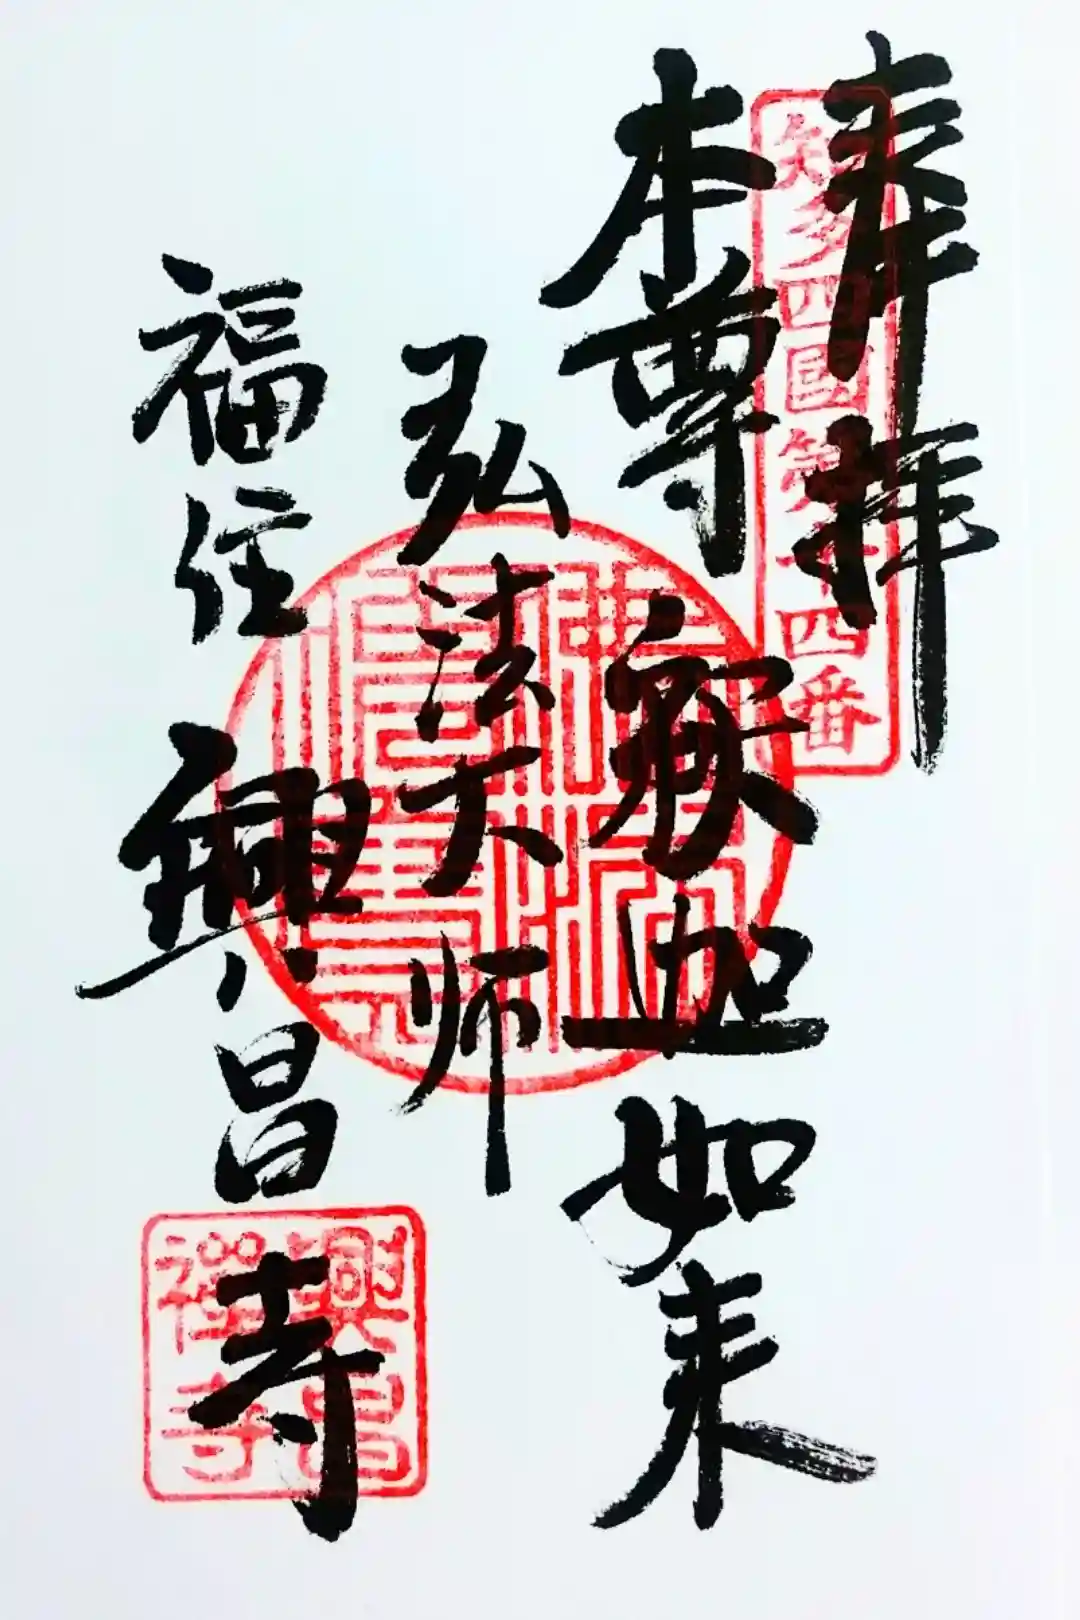 奉拝
知多四國第十四番
本尊釈迦如来
弘法大师
福住
興昌寺
興昌禅寺